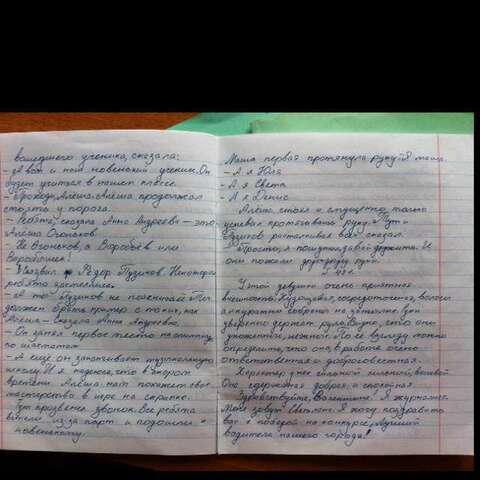 вошедшего ученика, сказала:
- А вот и наш новенький ученик. Он
будет учиться в нашем классе.
- Проходи, Алёша. Алёша продолжал
стоять у порога.
- Ребята, сказала Анна Андреевна - это
Алёша Огоньков.
- Не Огоньков, а Воробьёв или
Воробышек!
- Федор Пузиков. Некоторые
ребята засмеялись.
- А ты Пузиков не посмеивайся. Ты
должен брать пример с таких, как
Алёша - сказала Анна Андреевна.
- Он занял первое место на олимпиаде
по шахматам.
- А ещё он заканчивает музыкальную
школу. И я надеюсь, что в скором
времени Алёша, нам покажет своё
мастерство в игре на скрипке.
Тут прозвенел звонок. Все ребята
встали из-за парт и подошли к
новенькому.
Маша первая протянула руку: Я Маша.
- А я Юля
- А я Света
- А я Денис
Алёша стоял и смущенно только
успевал протягивать руку. Тут
Пузиков расталкивая всех сказал.
Прости, я пошутил, давай дружить. И
они пожали друг другу руки.
У той девушки очень приятная
внешность. Кудрявая, сосредоточена, волосы
аккуратно собраны на затылке. Она
уверенно держит руль. Видно, что она
По её взгляду можно
определить, что она в работе очень
ответственная и добросовестная.
Характер у нее сильный, волевой.
Она сдержанная добрая и спокойная.
Здравствуйте, Валентина! Я журналист.
Меня зовут Светлана. Я хочу поздравить
вас с победой на конкурсе "Лучший
водитель нашего города!"